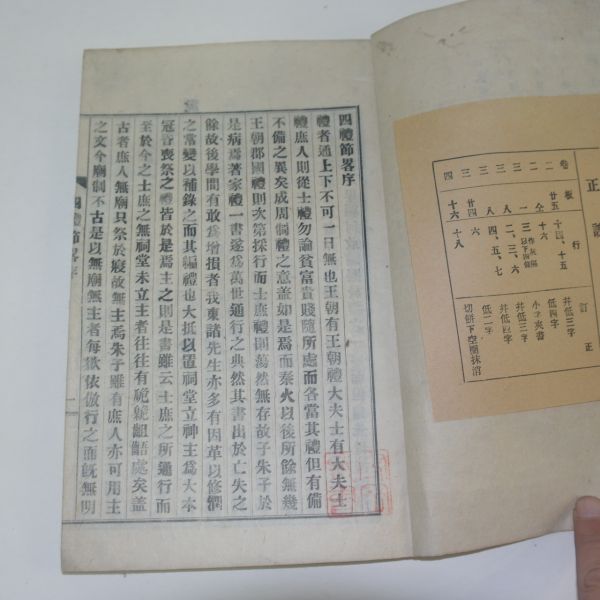 正誤
卷 板 行 訂正
二 廿五 十四、十五 并低三字
二 仝 十六 低四字
三 八 二、三、六 并低四字
三 八 四、五、七 低二字
四 廿四 六
四 十六 十八
切餠下空圈抹沼
四禮節畧序
禮者通上下不可一日無也王朝有王朝禮大夫士有大夫士
禮庶人則從士禮勿論貧富貴賤隨所處而各當其禮但有備
不備之異矣成周制禮之意盖如是焉而秦火以後所餘無幾
王朝郡國禮則次第採行而士庶禮則蕩然無存故子朱子於
是病焉著家禮一書遂爲萬世通行之典然其書出於亡失之
餘故後學間有敢爲增損者我東諸先生亦多有因革以修潤
之常變以補錄之而其編禮也大抵以置祠堂立神主爲大本
冠昏喪祭之禮皆於是焉主之則是書雖云士庶之所通行而
至於今之士庶之無祠堂未立主者往往有臲卼齟齬處矣盖
古者庶人無廟只祭於寢故無主焉朱子雖有庶人亦可用主
之文今廟制不古是以無廟無主者每欲依倣行之而旣無明
四禮節畧序
一